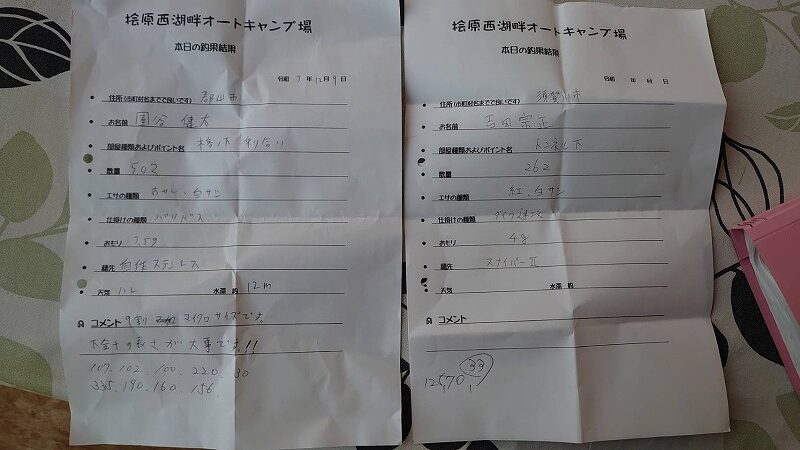 桧原西湖畔オートキャンプ場
本日の釣果結果
令和 7年12月9日
住所(市町村名までで良いです) 郡山市
お名前 園谷 健太
部屋種類およびポイント名 桧ノ下 乗り合い
数量 502
エサの種類 赤サシ、白サシ
仕掛けの種類 バリバス
おもり 3.5g
穂先 自作ステンレス
天気 ハレ 水深 約 12m
コメント 9割 マイクロサイズです。
下金十の長さが大事です!!
107、102、100、220、30
335、190、160、156
桧原西湖畔オートキャンプ場
本日の釣果結果
令和 年 月 日
住所(市町村名までで良いです) 須賀川市
お名前 吉田宗正
部屋種類およびポイント名 トンネル下
数量 262
エサの種類 紅、白サシ
仕掛けの種類
おもり 4g
穂先 スナイパーII
天気 水深 約
コメント
33